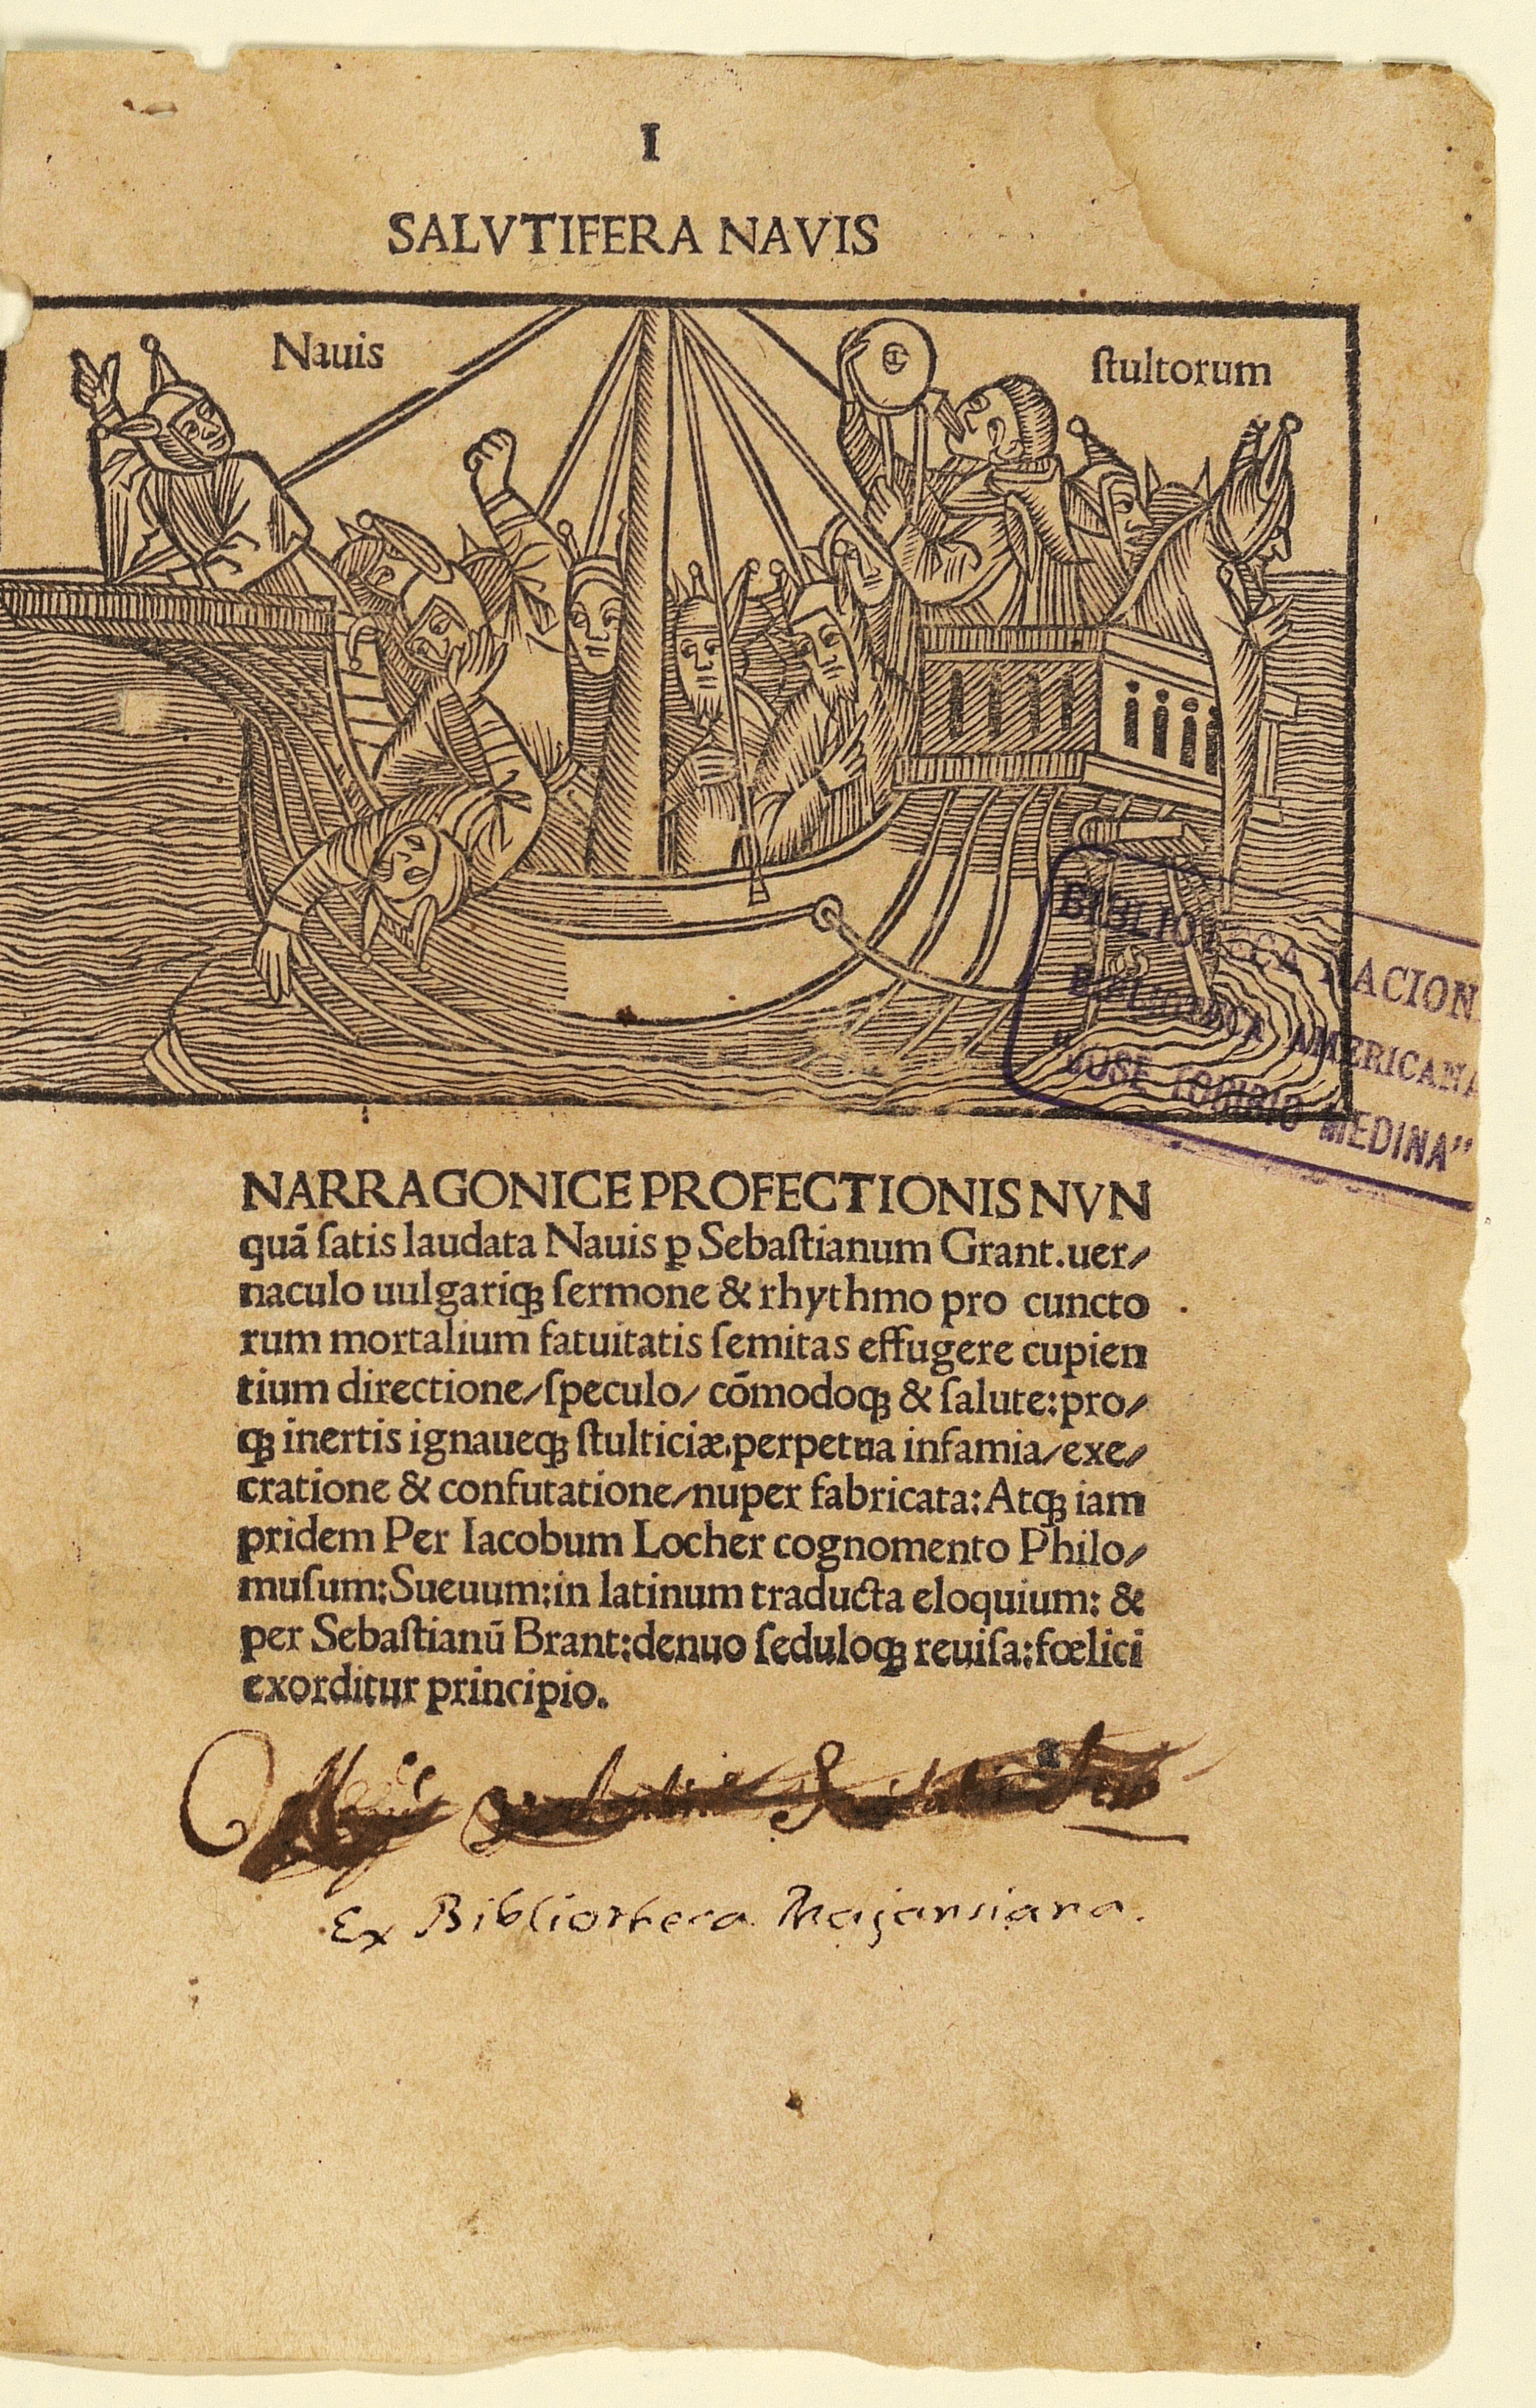 I
SALVTIFERA NAVIS
Nauis ſtultorum
BIBLIOTECA NACION
BIBLIOTECA AMERICANA
"JOSE TORIBIO MEDINA"
NARRAGONICE PROFECTIONIS NVN
quā ſatis laudata Nauis ꝑ Sebaſtianum Grant.uer⸗
naculo uulgariqꝫ ſermone & rhythmo pro cuncto
rum mortalium fatuitatis ſemitas effugere cupien
tium directione/ſpeculo/ cōmodoqꝫ & ſalute:pro⸗
qꝫ inertis ignaueqꝫ ſtulticiæ.perpetua infamia/exe⸗
cratione & confutatione/nuper fabricata:Atqꝫ iam
pridem Per Iacobum Locher cognomento Philo⸗
muſum:Sueuum:in latinum traducta eloquium: &
per Sebaſtianū Brant:denuo ſeduloqꝫ reuiſa:fœlici
exorditur principio.
Ex Bibliotheca Majansiana.